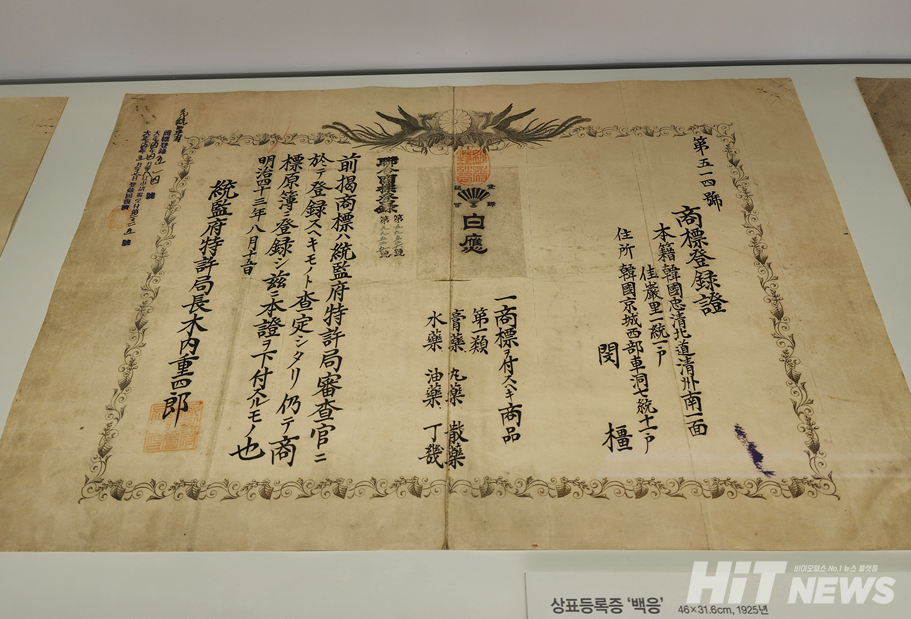 第五一四號
商標登錄證
本籍 韓國忠清北道清州南一面
佳巖里一統一戶
住所 韓國京城西部車洞七統十一戶
閔 橿
白應
一商標ヲ付スヘキ商品
第一類
膏藥 丸藥 散藥
水藥 油藥 丁幾
前揭商標ハ統監府特許局審查官ニ
於テ登録スヘキモノト查定シタリ仍テ商
標原簿ニ登録シ茲ニ本證ヲ下付スルモノ也
明治四十三年八月十五日
統監府特許局長木內重四郎
상표등록증 '백응' 46×31.6cm, 1925년
바이오헬스 No.1 뉴스 플랫폼
HiT NEWS